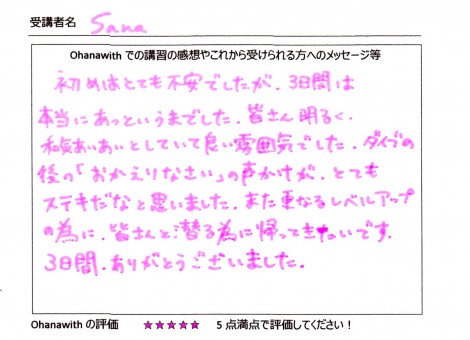 受講者名 Sana
Ohanawith での講習の感想やこれから受けられる方へのメッセージ等
初めはとても不安でしたが、3日間は
本当にあっというまでした。皆さん明るく、
和気あいあいとしていて良い雰囲気でした。ダイブの
後の「おかえりなさい」の声かけが、とても
ステキだなと思いました。また重なるレベルアップ
の為に、皆さんと潜る為に帰ってきたいです。
3日間、ありがとうございました。
Ohanawith の評価 ★★★★★ 5 点満点で評価してください！